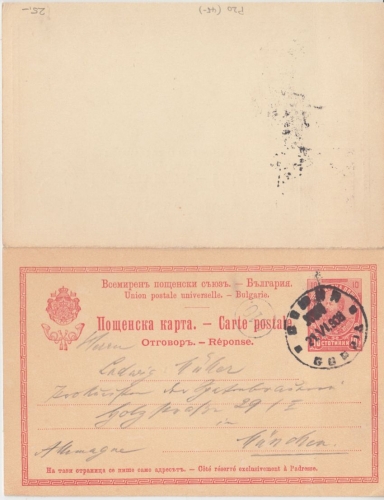 25.-
P20 (45-)
Всемиренъ пощенски съюзъ. — България.
Union postale universelle. — Bulgarie.
Пощенска карта. — Carte postale
Отговоръ. — Réponse.
10 СТОТИНКИ 10
Herrn
Ludwig Müller
29/I
in
München
Allemagne
На тази страница се пише само адресътъ. — Côté réservé exclusivement à l'adresse.